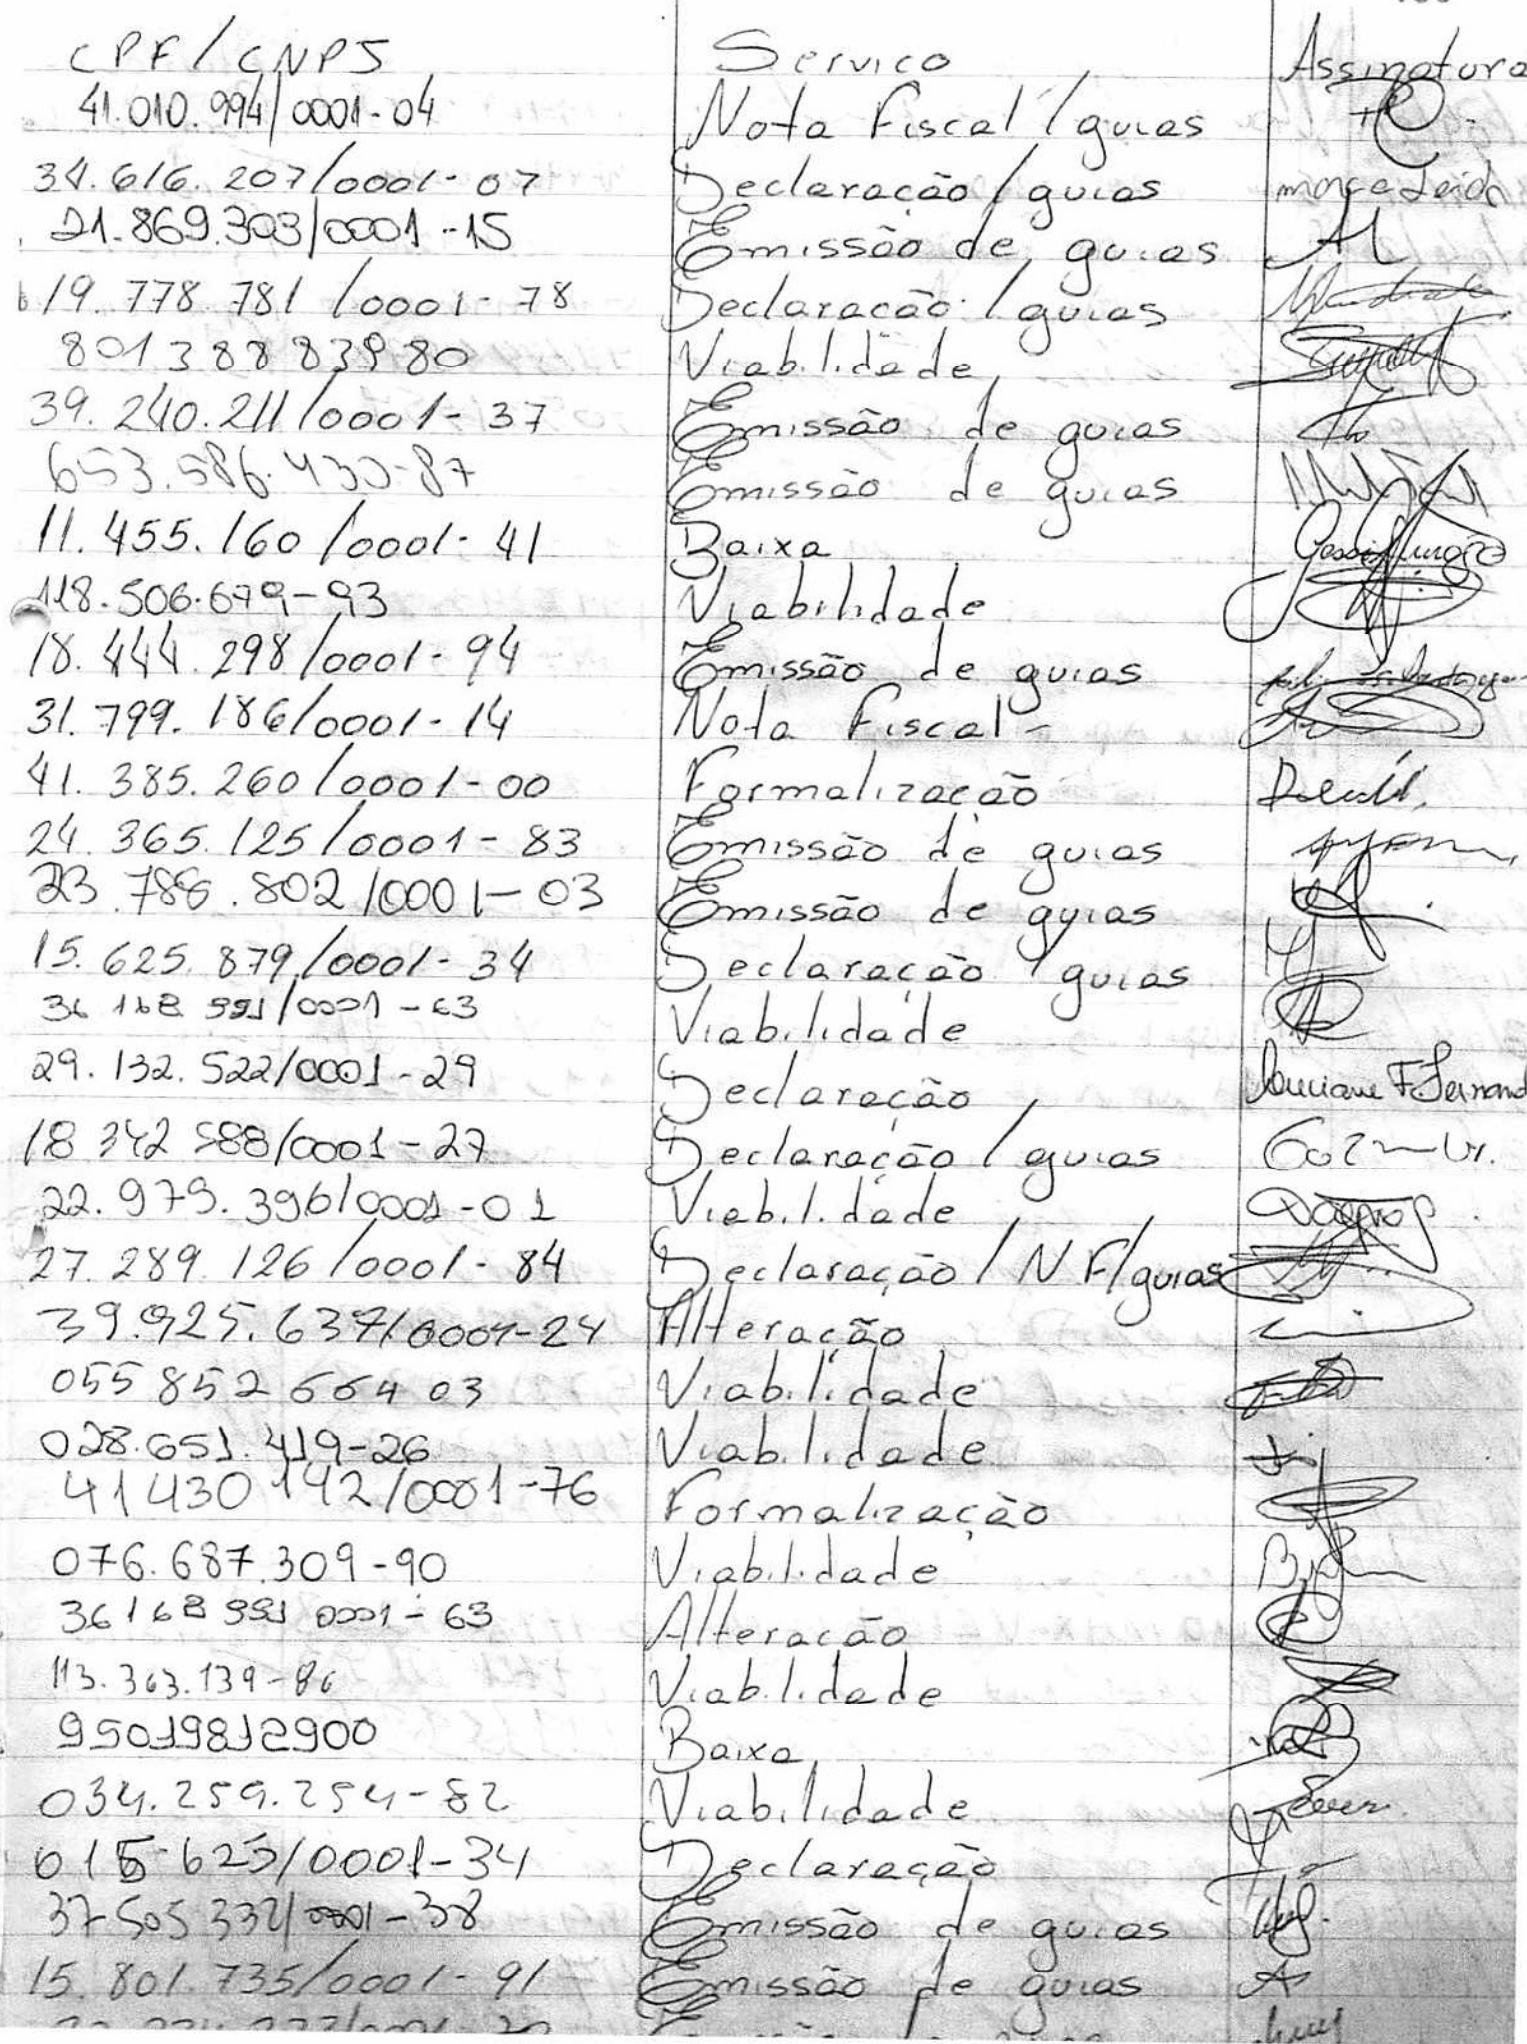 CPF/CNPJ Serviço Assinatura
41.010.994/0001-04 Nota Fiscal/guias
34.616.207/0001-07 Declaração/guias
21.869.303/0001-15 Emissão de guias
19.778.781/0001-78 Declaração/guias
80138883980 Viabilidade
39.240.211/0001-37 Emissão de guias
653.586.430-87 Emissão de guias
11.455.160/0001-41 Baixa
118.506.679-93 Viabilidade
18.444.298/0001-94 Emissão de guias
31.799.186/0001-14 Nota Fiscal -
41.385.260/0001-00 Formalização
24.365.125/0001-83 Emissão de guias
23.788.802/0001-03 Emissão de guias
15.625.879/0001-34 Declaração/guias
36 168 991/0001-63 Viabilidade
29.132.522/0001-29 Declaração Luciane F.
18 342 588/0001-27 Declaração/guias
22.979.396/0001-01 Viabilidade
27.289.126/0001-84 Declaração/NF/guias
39.925.637/0001-24 Alteração
055 852 664 03 Viabilidade
028.651.419-26 Viabilidade
41 430 142/0001-76 Formalização
076.687.309-90 Viabilidade
36 168 991 0001-63 Alteração
113.363.139-86 Viabilidade
95019812900 Baixa
034.259.254-82 Viabilidade
015 625/0001-34 Declaração
37 505 332/0001-38 Emissão de guias
15.801.735/0001-91 Emissão de guias